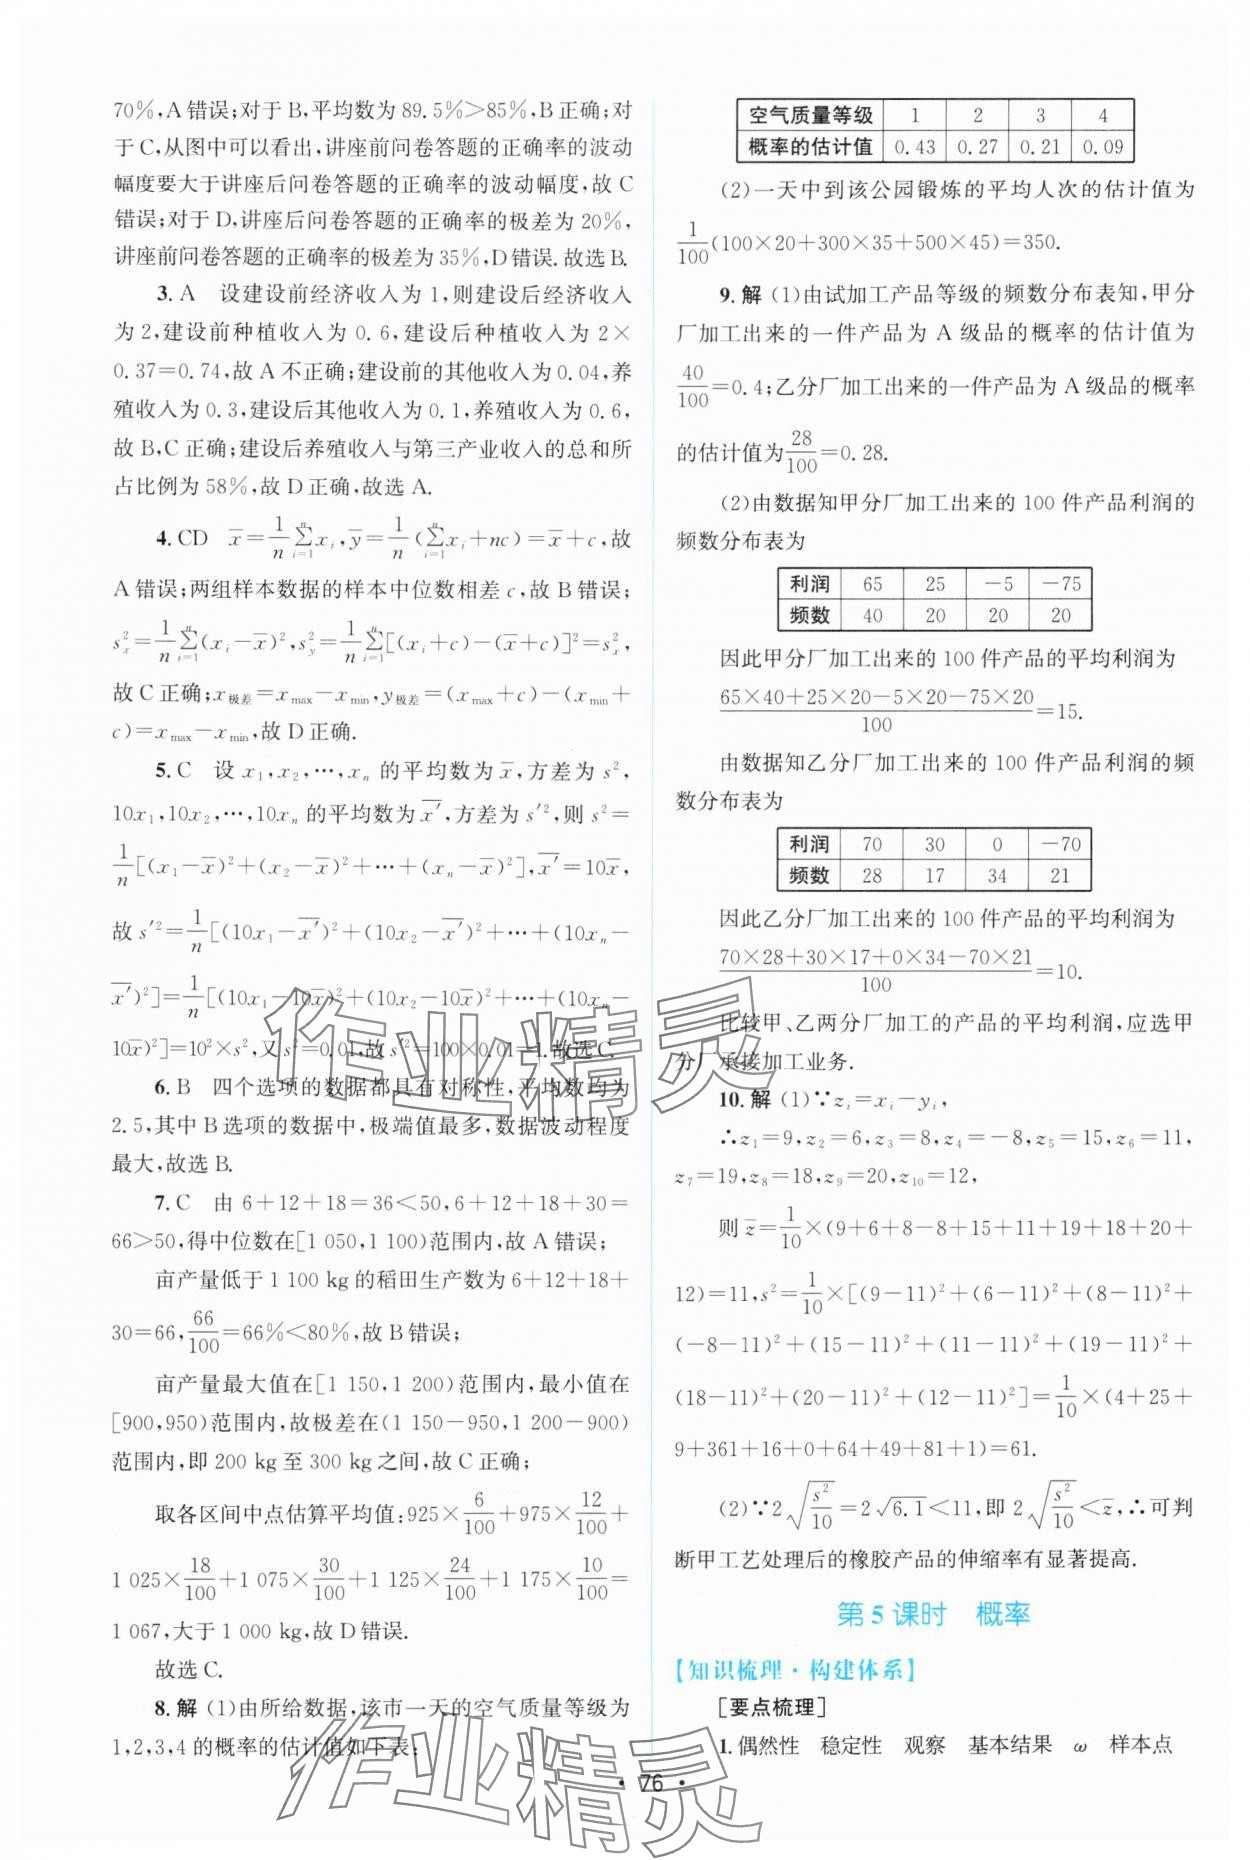 70%,A 错误;对于 B,平均数为 89.5%>85%,B 正确;对
于 C,从图中可以看出,讲座前问卷答题的正确率的波动
幅度要大于讲座后问卷答题的正确率的波动幅度,故 C
错误;对于 D,讲座后问卷答题的正确率的极差为 20%,
讲座前问卷答题的正确率的极差为 35%,D 错误.故选 B.
3.A 设建设前经济收入为 1,则建设后经济收入
为 2,建设前种植收入为 0.6,建设后种植收入为 2×
0.37=0.74,故 A 不正确;建设前的其他收入为 0.04,养
殖收入为 0.3,建设后其他收入为 0.1,养殖收入为 0.6,
故 B,C 正确;建设后养殖收入与第三产业收入的总和所
占比例为 58%,故 D 正确,故选 A.
4.CD x̄=1/n ∑_{i=1}^{n} x_i,ȳ=1/n (∑_{i=1}^{n} x_i+nc)=x̄+c,故
A 错误;两组样本数据的样本中位数相差 c,故 B 错误;
s_x²=1/n ∑_{i=1}^{n}(x_i-x̄)²,s_y²=1/n ∑_{i=1}^{n}[(x_i+c)-(x̄+c)]²=s_x²,
故 C 正确;x_极差=x_max-x_min,y_极差=(x_max+c)-(x_min+
c)=x_max-x_min,故 D 正确.
5.C 设 x₁,x₂,…,x_n 的平均数为 x̄,方差为 s²,
10x₁,10x₂,…,10x_n 的平均数为 x̄′,方差为 s′²,则 s²=
1/n[(x₁-x̄)²+(x₂-x̄)²+…+(x_n-x̄)²],x̄′=10x̄,
故 s′²=1/n[(10x₁-x̄′)²+(10x₂-x̄′)²+…+(10x_n-
x̄′)²]=1/n[(10x₁-10x̄)²+(10x₂-10x̄)²+…+(10x_n-
10x̄)²]=10²×s²,又 s²=0.01,故 s′²=100×0.01=1.故选 C.
6.B 四个选项的数据都具有对称性,平均数均为
2.5,其中 B 选项的数据中,极端值最多,数据波动程度
最大,故选 B.
7.C 由 6+12+18=36<50,6+12+18+30=
66>50,得中位数在[1 050,1 100)范围内,故 A 错误;
亩产量低于 1 100 kg 的稻田生产数为 6+12+18+
30=66,66/100=66%<80%,故 B 错误;
亩产量最大值在[1 150,1 200)范围内,最小值在
[900,950)范围内,故极差在(1 150-950,1 200-900)
范围内,即 200 kg 至 300 kg 之间,故 C 正确;
取各区间中点估算平均值:925×6/100+975×12/100+
1 025×18/100+1 075×30/100+1 125×24/100+1 175×10/100=
1 067,大于 1 000 kg,故 D 错误.
故选 C.
8.解 (1)由所给数据,该市一天的空气质量等级为
1,2,3,4 的概率的估计值如下表:
空气质量等级 1 2 3 4
概率的估计值 0.43 0.27 0.21 0.09
(2)一天中到该公园锻炼的平均人次的估计值为
1/100(100×20+300×35+500×45)=350.
9.解 (1)由试加工产品等级的频数分布表知,甲分
厂加工出来的一件产品为 A 级品的概率的估计值为
40/100=0.4;乙分厂加工出来的一件产品为 A 级品的概率
的估计值为28/100=0.28.
(2)由数据知甲分厂加工出来的 100 件产品利润的
频数分布表为
利润 65 25 -5 -75
频数 40 20 20 20
因此甲分厂加工出来的 100 件产品的平均利润为
(65×40+25×20-5×20-75×20)/100=15.
由数据知乙分厂加工出来的 100 件产品利润的频
数分布表为
利润 70 30 0 -70
频数 28 17 34 21
因此乙分厂加工出来的 100 件产品的平均利润为
(70×28+30×17+0×34-70×21)/100=10.
比较甲、乙两分厂加工的产品的平均利润,应选甲
分厂承接加工业务.
10.解 (1)∵z_i=x_i-y_i,
∴z₁=9,z₂=6,z₃=8,z₄=-8,z₅=15,z₆=11,
z₇=19,z₈=18,z₉=20,z₁₀=12,
则 z̄=1/10×(9+6+8-8+15+11+19+18+20+
12)=11,s²=1/10×[(9-11)²+(6-11)²+(8-11)²+
(-8-11)²+(15-11)²+(11-11)²+(19-11)²+
(18-11)²+(20-11)²+(12-11)²]=1/10×(4+25+
9+361+16+0+64+49+81+1)=61.
(2)∵2√(s²/10)=2√6.1<11,即 2√(s²/10)<z̄,∴可判
断甲工艺处理后的橡胶产品的伸缩率有显著提高.
第 5 课时 概率
【知识梳理·构建体系】
[要点梳理]
1.偶然性 稳定性 观察 基本结果 ω 样本点
· 76 ·
作业精灵
作业精灵